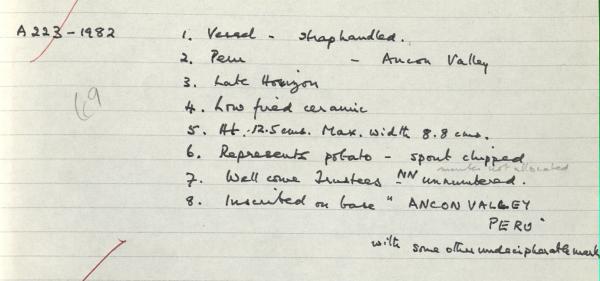 A223-1982
1. Vessel - straphandled.
2. Peru - Ancon Valley
3. Late Horizon
4. Low fired ceramic
5. Ht. 12.5 cms. Max. width 8.8 cms.
6. Represents potato - spout chipped
number not allocated
7. Wellcome Trustees NN unnumbered.
8. Inscribed on base "ANCON VALLEY
PERU"
with some other undecipherable mark